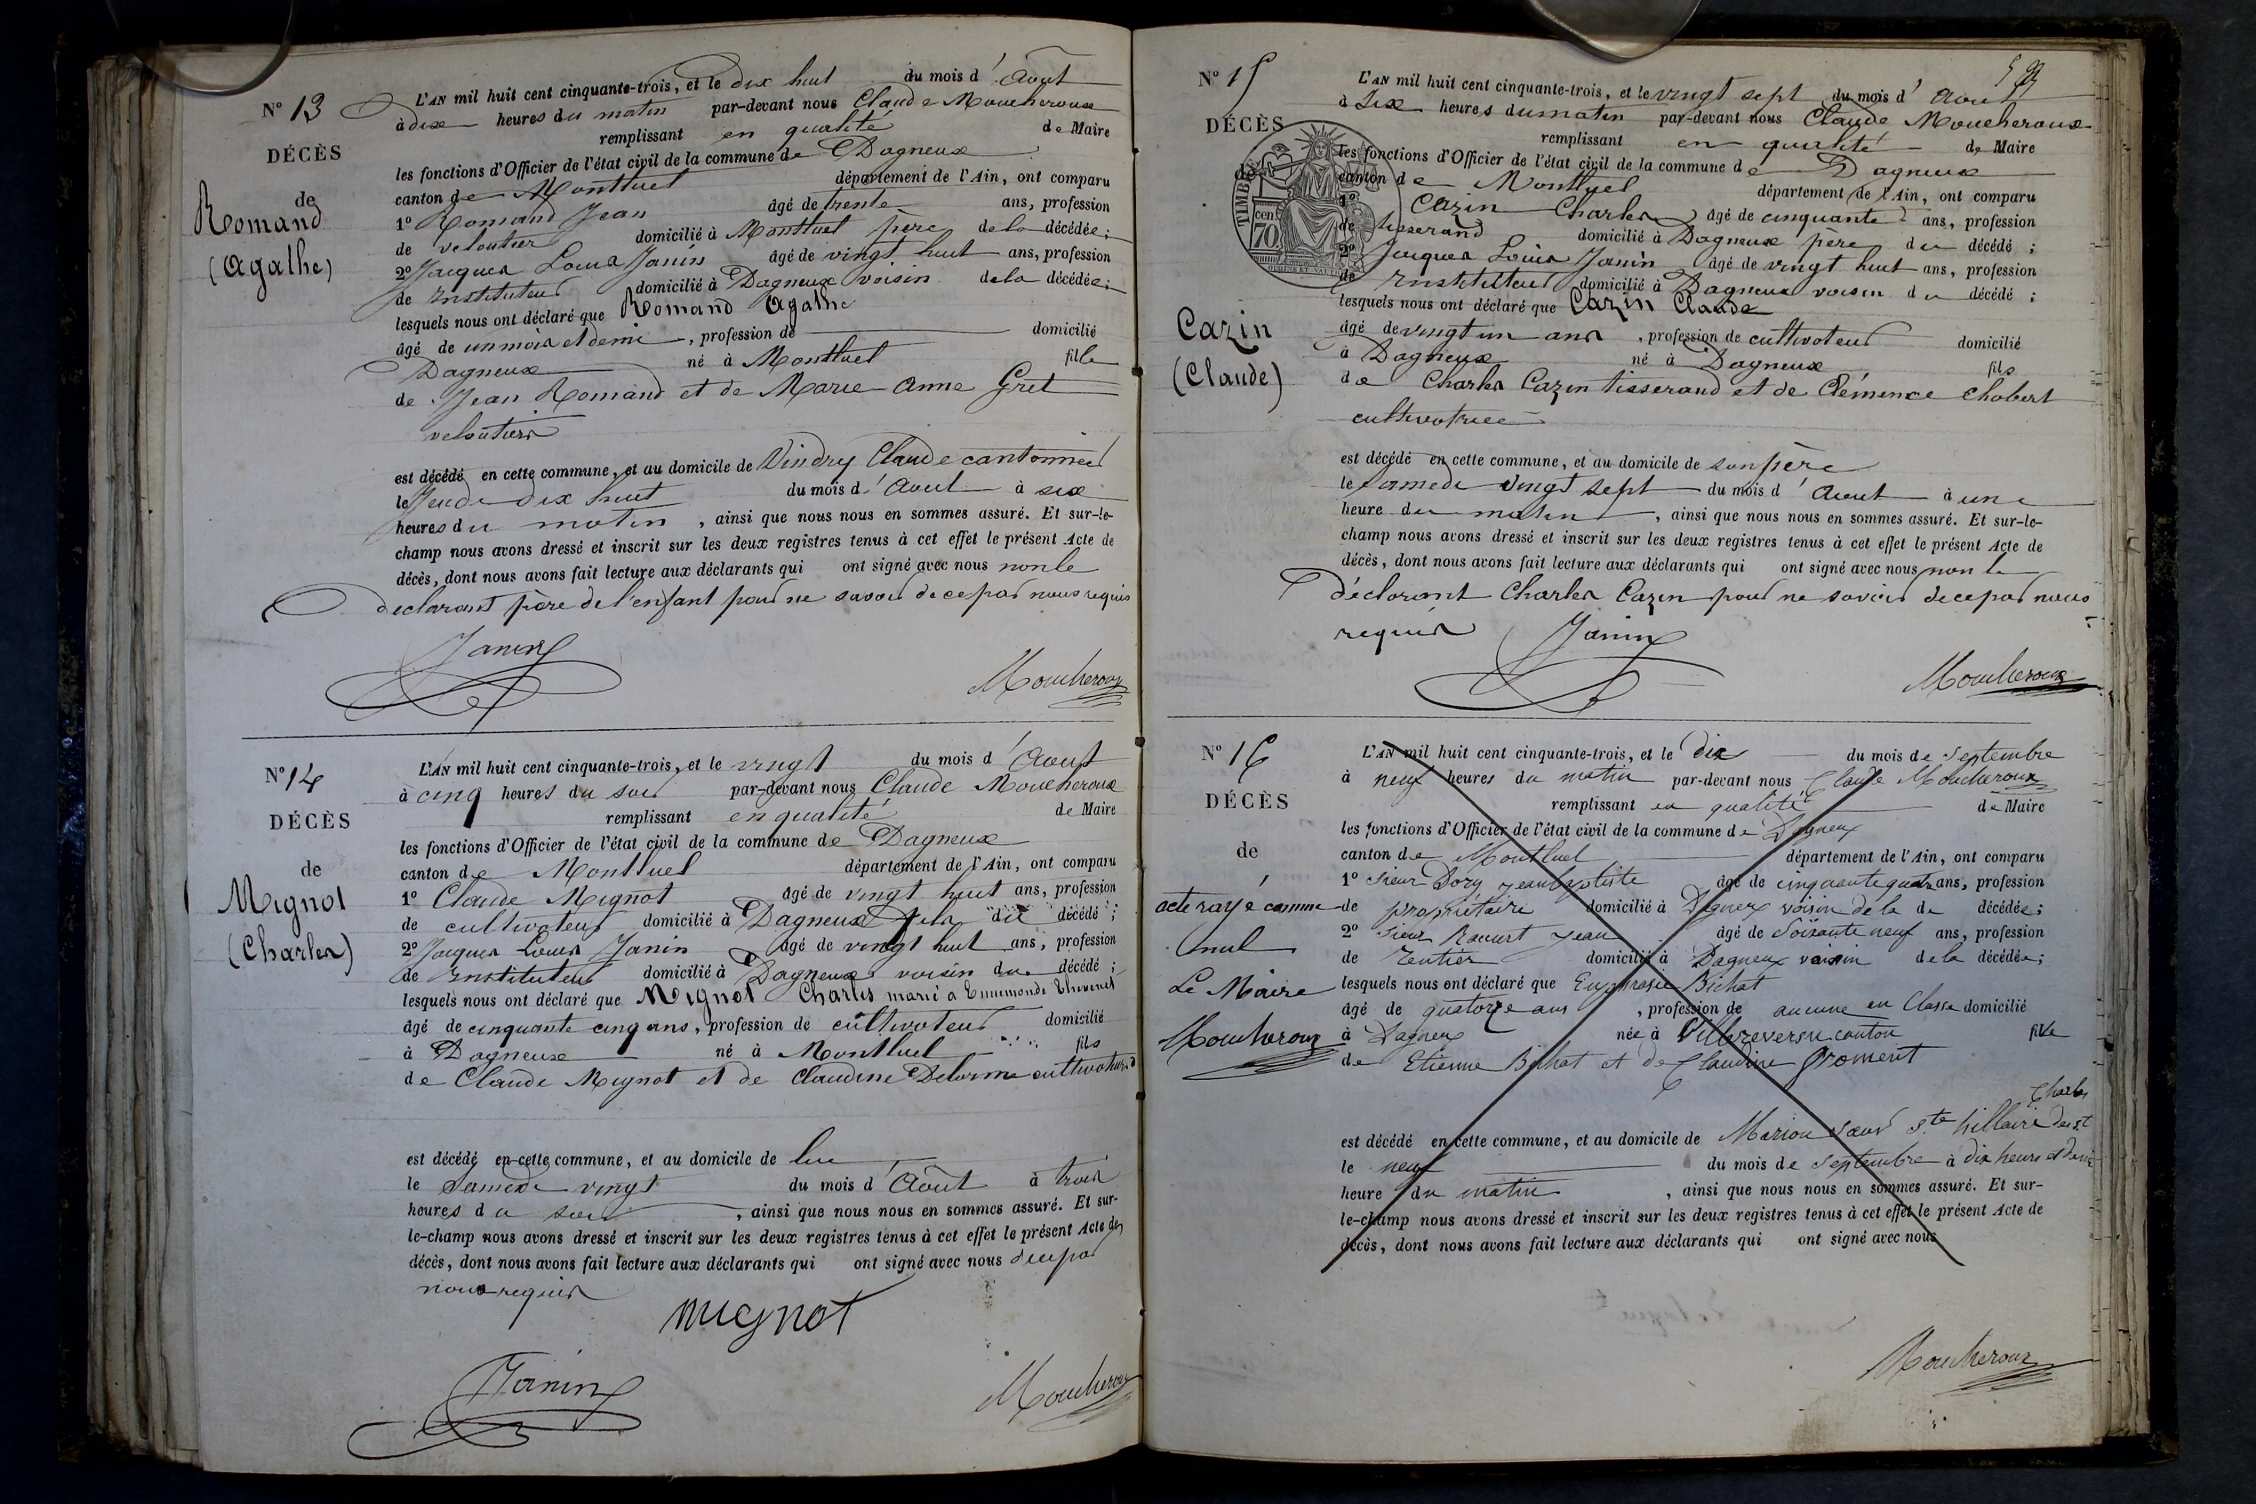 N° 13
DÉCÈS
de
Romand
(Agathe)
L'AN mil huit cent cinquante-trois, et le dix huit du mois d'Août
à dix heures du matin par-devant nous Claude Moucheroux
remplissant en qualité de Maire
les fonctions d'Officier de l'état civil de la commune de Dagneux
canton de Montluel département de l'Ain, ont comparu
1° Romand Jean âgé de trente ans, profession
de veloutier domicilié à Montluel père de la décédée;
2° Jacques Louis Janin âgé de vingt huit ans, profession
de Instituteur domicilié à Dagneux voisin de la décédée;
lesquels nous ont déclaré que Romand Agathe
âgé de un mois et demi, profession de domicilié
Dagneux né à Montluel fille
de Jean Romand et de Marie Anne Gret
veloutiers
est décédé en cette commune, et au domicile de Vindry Claude cantonnier
le Jeudi dix huit du mois d'Aout à six
heures du matin, ainsi que nous nous en sommes assuré. Et sur-le-
champ nous avons dressé et inscrit sur les deux registres tenus à cet effet le présent Acte de
décès, dont nous avons fait lecture aux déclarants qui ont signé avec nous non le
declarant père de l'enfant pour ne savoir de ce par nous requis
Janin
Moucheroux
N° 14
DÉCÈS
de
Mignot
(Charles)
L'AN mil huit cent cinquante-trois, et le vingt du mois d'Aout
à cinq heures du soir par-devant nous Claude Moucheroux
remplissant en qualité de Maire
les fonctions d'Officier de l'état civil de la commune de Dagneux
canton de Montluel département de l'Ain, ont comparu
1° Claude Mignot âgé de vingt huit ans, profession
de cultivateur domicilié à Dagneux fils du décédé;
2° Jacques Louis Janin âgé de vingt huit ans, profession
de Instituteur domicilié à Dagneux voisin du décédé;
lesquels nous ont déclaré que Mignot Charles marié a Ennemonde Thevenet
âgé de cinquante cinq ans, profession de cultivateur domicilié
à Dagneux né à Montluel fils
de Claude Mignot et de Claudine Delorme cultivateurs
est décédé en cette commune, et au domicile de lui
le Samedi vingt du mois d'Août à trois
heures du soir, ainsi que nous nous en sommes assuré. Et sur-
le-champ nous avons dressé et inscrit sur les deux registres tenus à cet effet le présent Acte de
décès, dont nous avons fait lecture aux déclarants qui ont signé avec nous de ce par
nous requis
mignot
Janin
Moucheroux
N° 15
DÉCÈS
de
TIMBRE
70 cen
Cazin
(Claude)
L'AN mil huit cent cinquante-trois, et le vingt sept du mois d'Aout
à six heures du matin par-devant nous Claude Moucheroux
remplissant en qualité de Maire
les fonctions d'Officier de l'état civil de la commune de Dagneux
canton de Montluel département de l'Ain, ont comparu
1° Cazin Charles âgé de cinquante ans, profession
de tisserand domicilié à Dagneux père du décédé;
2° Jacques Louis Janin âgé de vingt huit ans, profession
de Instituteur domicilié à Dagneux voisin du décédé;
lesquels nous ont déclaré que Cazin Claude
âgé de vingt un ans, profession de cultivateur domicilié
à Dagneux né à Dagneux fils
de Charles Cazin tisserand et de Clémence Chabert
cultivatrice
est décédé en cette commune, et au domicile de son père
le Samedi vingt sept du mois d'Aout à une
heure du matin, ainsi que nous nous en sommes assuré. Et sur-le-
champ nous avons dressé et inscrit sur les deux registres tenus à cet effet le présent Acte de
décès, dont nous avons fait lecture aux déclarants qui ont signé avec nous non le
déclarant Charles Cazin pour ne savoir de ce par nous
requis
Janin
Moucheroux
N° 16
DÉCÈS
de
acte rayé comme
nul
Le Maire
Moucheroux
L'AN mil huit cent cinquante-trois, et le dix du mois de Septembre
à neuf heures du matin par-devant nous Claude Moucheroux
remplissant en qualité de Maire
les fonctions d'Officier de l'état civil de la commune de Dagneux
canton de Montluel département de l'Ain, ont comparu
1° Sieur Dory Jean baptiste âgé de cinquante quatre ans, profession
de propriétaire domicilié à Dagneux voisin de la de décédée;
2° Sieur Jean âgé de Soixante neuf ans, profession
de rentier domicilié à Dagneux voisin de la décédée;
lesquels nous ont déclaré que Euphrasie Bichat
âgé de quatorze ans, profession de aucune en Classe domicilié
à Dagneux née à Villereversure canton fille
de Etienne Bichat et de Claudine Froment
Charles
est décédé en cette commune, et au domicile de Marion Sœur Ste hillaire de St
le neuf du mois de Septembre à dix heures et demie
heure du matin, ainsi que nous nous en sommes assuré. Et sur-
le-champ nous avons dressé et inscrit sur les deux registres tenus à cet effet le présent Acte de
décès, dont nous avons fait lecture aux déclarants qui ont signé avec nous
Moucheroux